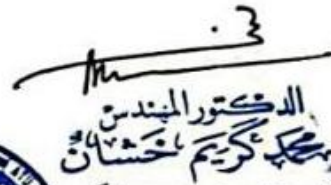 الدكتور المهندس
محمد كريم خشان